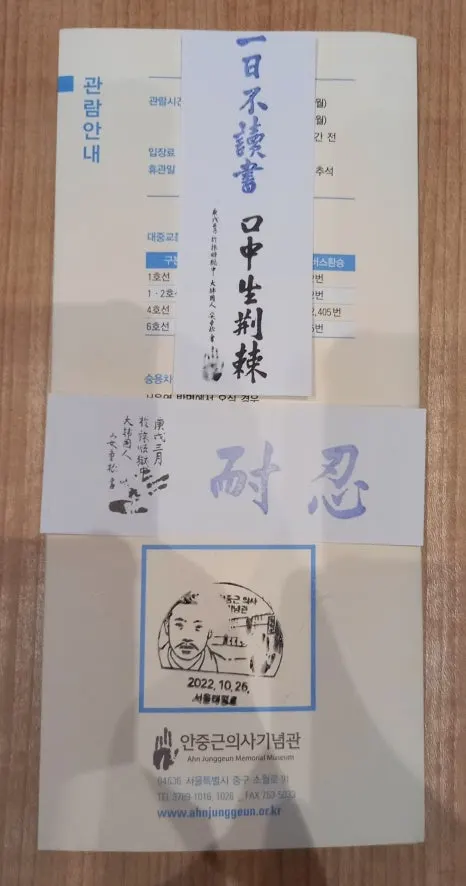 관람안내
관람시간
월)
월)
간 전
입장료
휴관일
추석
대중교통
버스환승
1호선
1 · 2호선
4호선
2,405번
6호선
승용차
一日不讀書
口中生荊棘
庚戌三月 於旅順獄中 大韓國人 安重根 書
忍耐
庚戌三月
於旅順獄中
大韓國人
安重根 書
안중근 의사
기념관
2022.10.26.
안중근의사기념관
Ahn Junggeun Memorial Museum
04636 서울특별시 중구 소월로 91
TEL 3789-1016, 1026 FAX 753-5033
www.ahnjunggeun.or.kr